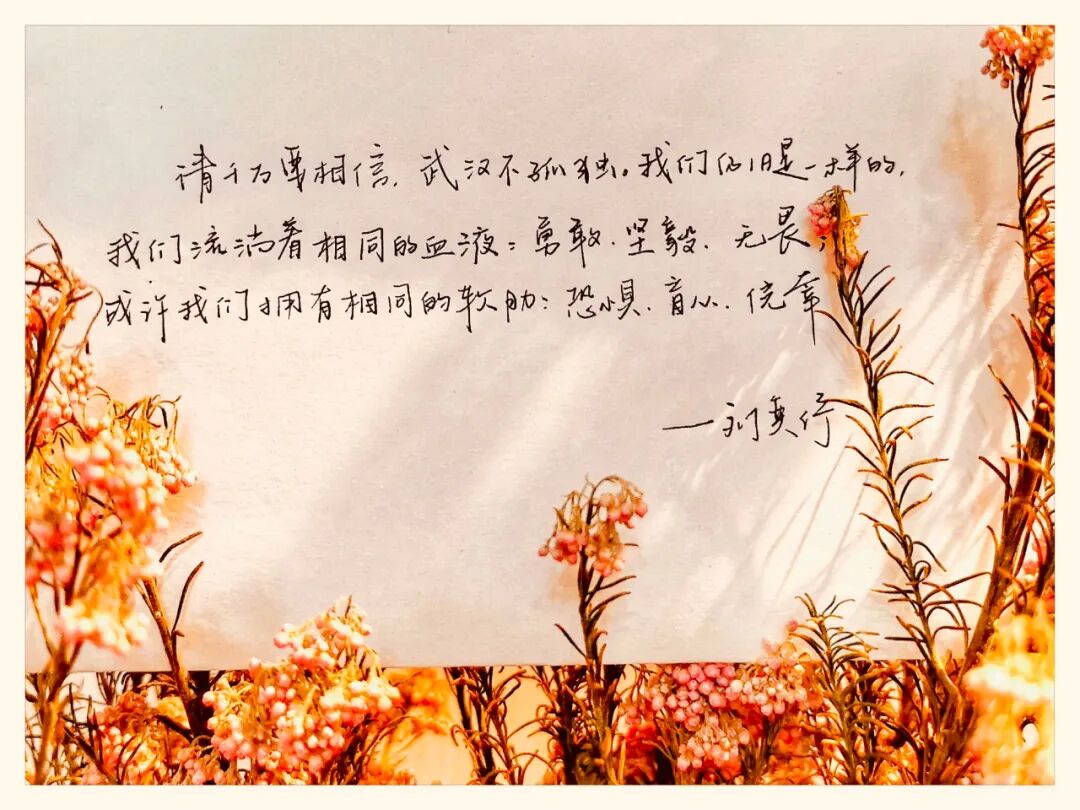 请千万要相信，武汉不孤独。我们仍旧是一样的，
我们流淌着相同的血液：勇敢、坚毅、无畏；
或许我们拥有相同的软肋：恐惧、盲从、侥幸
——刘奕伃